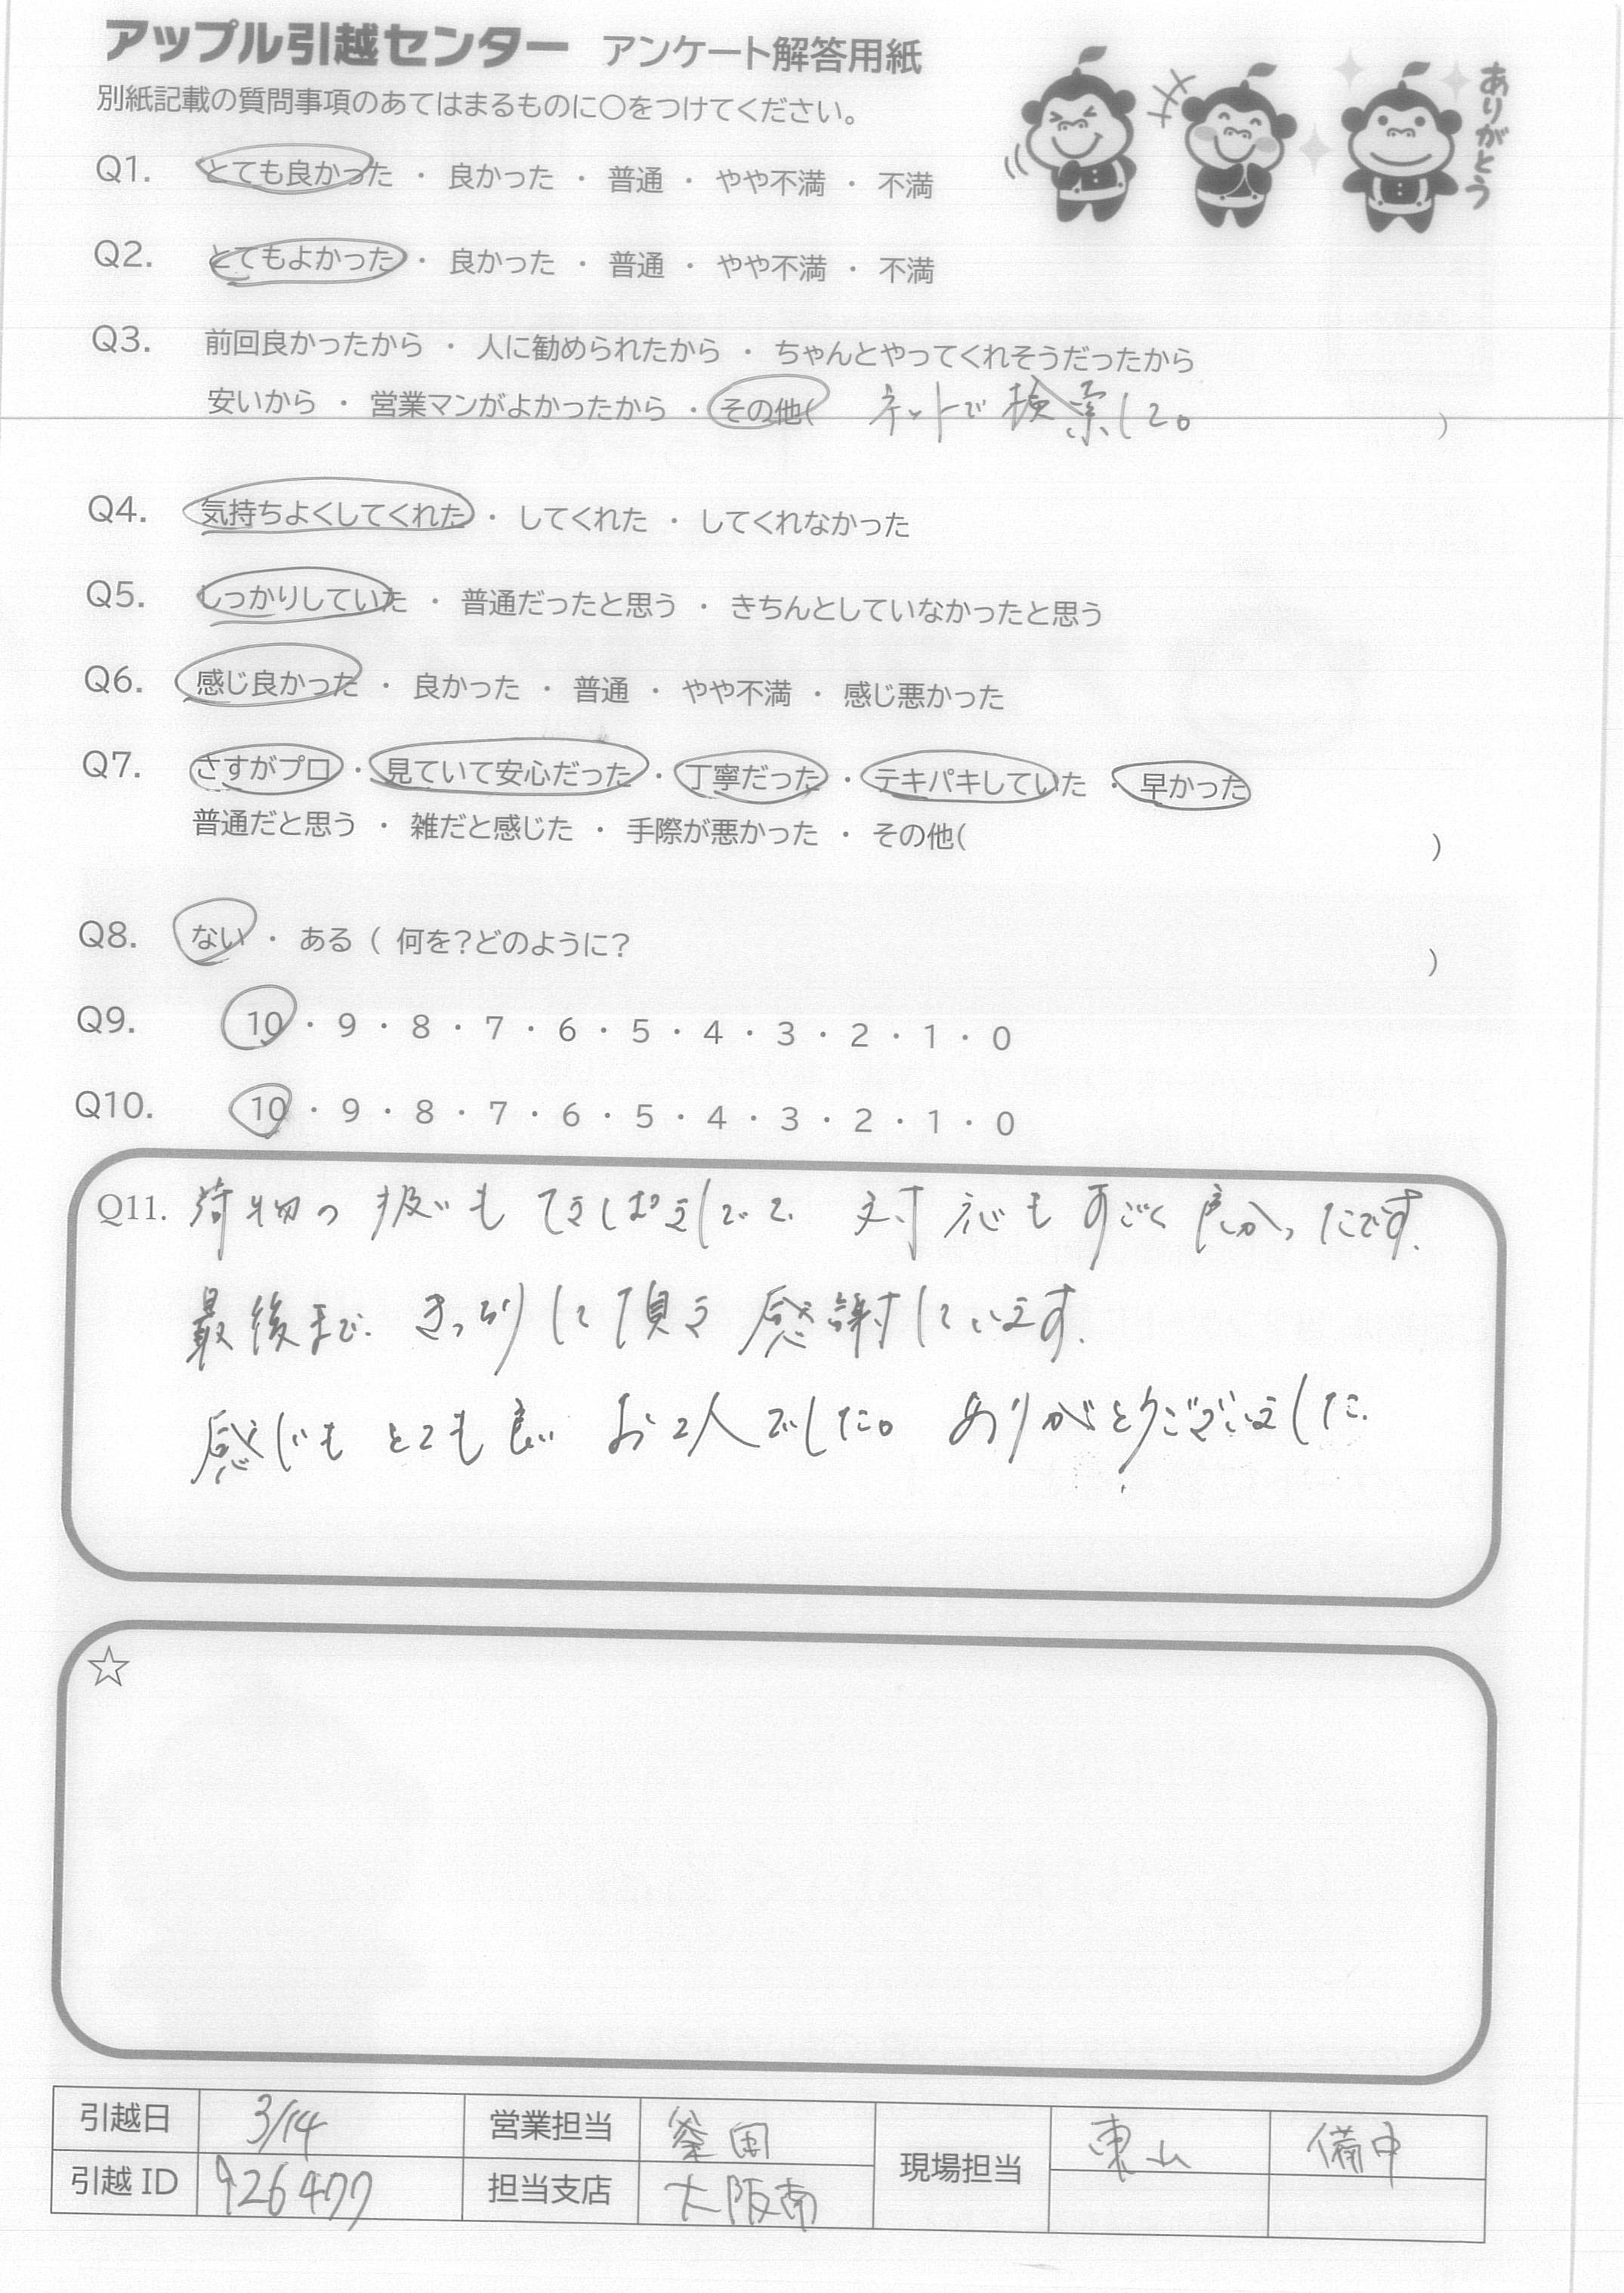 アップル引越センター アンケート解答用紙
別紙記載の質問事項のあてはまるものに○をつけてください。
ありがとう
Q1. とても良かった ・ 良かった ・ 普通 ・ やや不満 ・ 不満
Q2. とてもよかった ・ 良かった ・ 普通 ・ やや不満 ・ 不満
Q3. 前回良かったから ・ 人に勧められたから ・ ちゃんとやってくれそうだったから
安いから ・ 営業マンがよかったから ・ その他( ネットで検索して。 )
Q4. 気持ちよくしてくれた ・ してくれた ・ してくれなかった
Q5. しっかりしていた ・ 普通だったと思う ・ きちんとしていなかったと思う
Q6. 感じ良かった ・ 良かった ・ 普通 ・ やや不満 ・ 感じ悪かった
Q7. さすがプロ ・ 見ていて安心だった ・ 丁寧だった ・ テキパキしていた ・ 早かった
普通だと思う ・ 雑だと感じた ・ 手際が悪かった ・ その他( )
Q8. ない ・ ある ( 何を?どのように? )
Q9. 10 ・ 9 ・ 8 ・ 7 ・ 6 ・ 5 ・ 4 ・ 3 ・ 2 ・ 1 ・ 0
Q10. 10 ・ 9 ・ 8 ・ 7 ・ 6 ・ 5 ・ 4 ・ 3 ・ 2 ・ 1 ・ 0
Q11. 荷物の扱いも てきぱきしていて 対応も すごく良かったです.
最後まで きっちりして頂き 感謝しています.
感じも とても良い お2人でした。 ありがとうございました.
☆
引越日 3/14 営業担当 現場担当 東山 備中
引越ID 926477 担当支店 大阪南